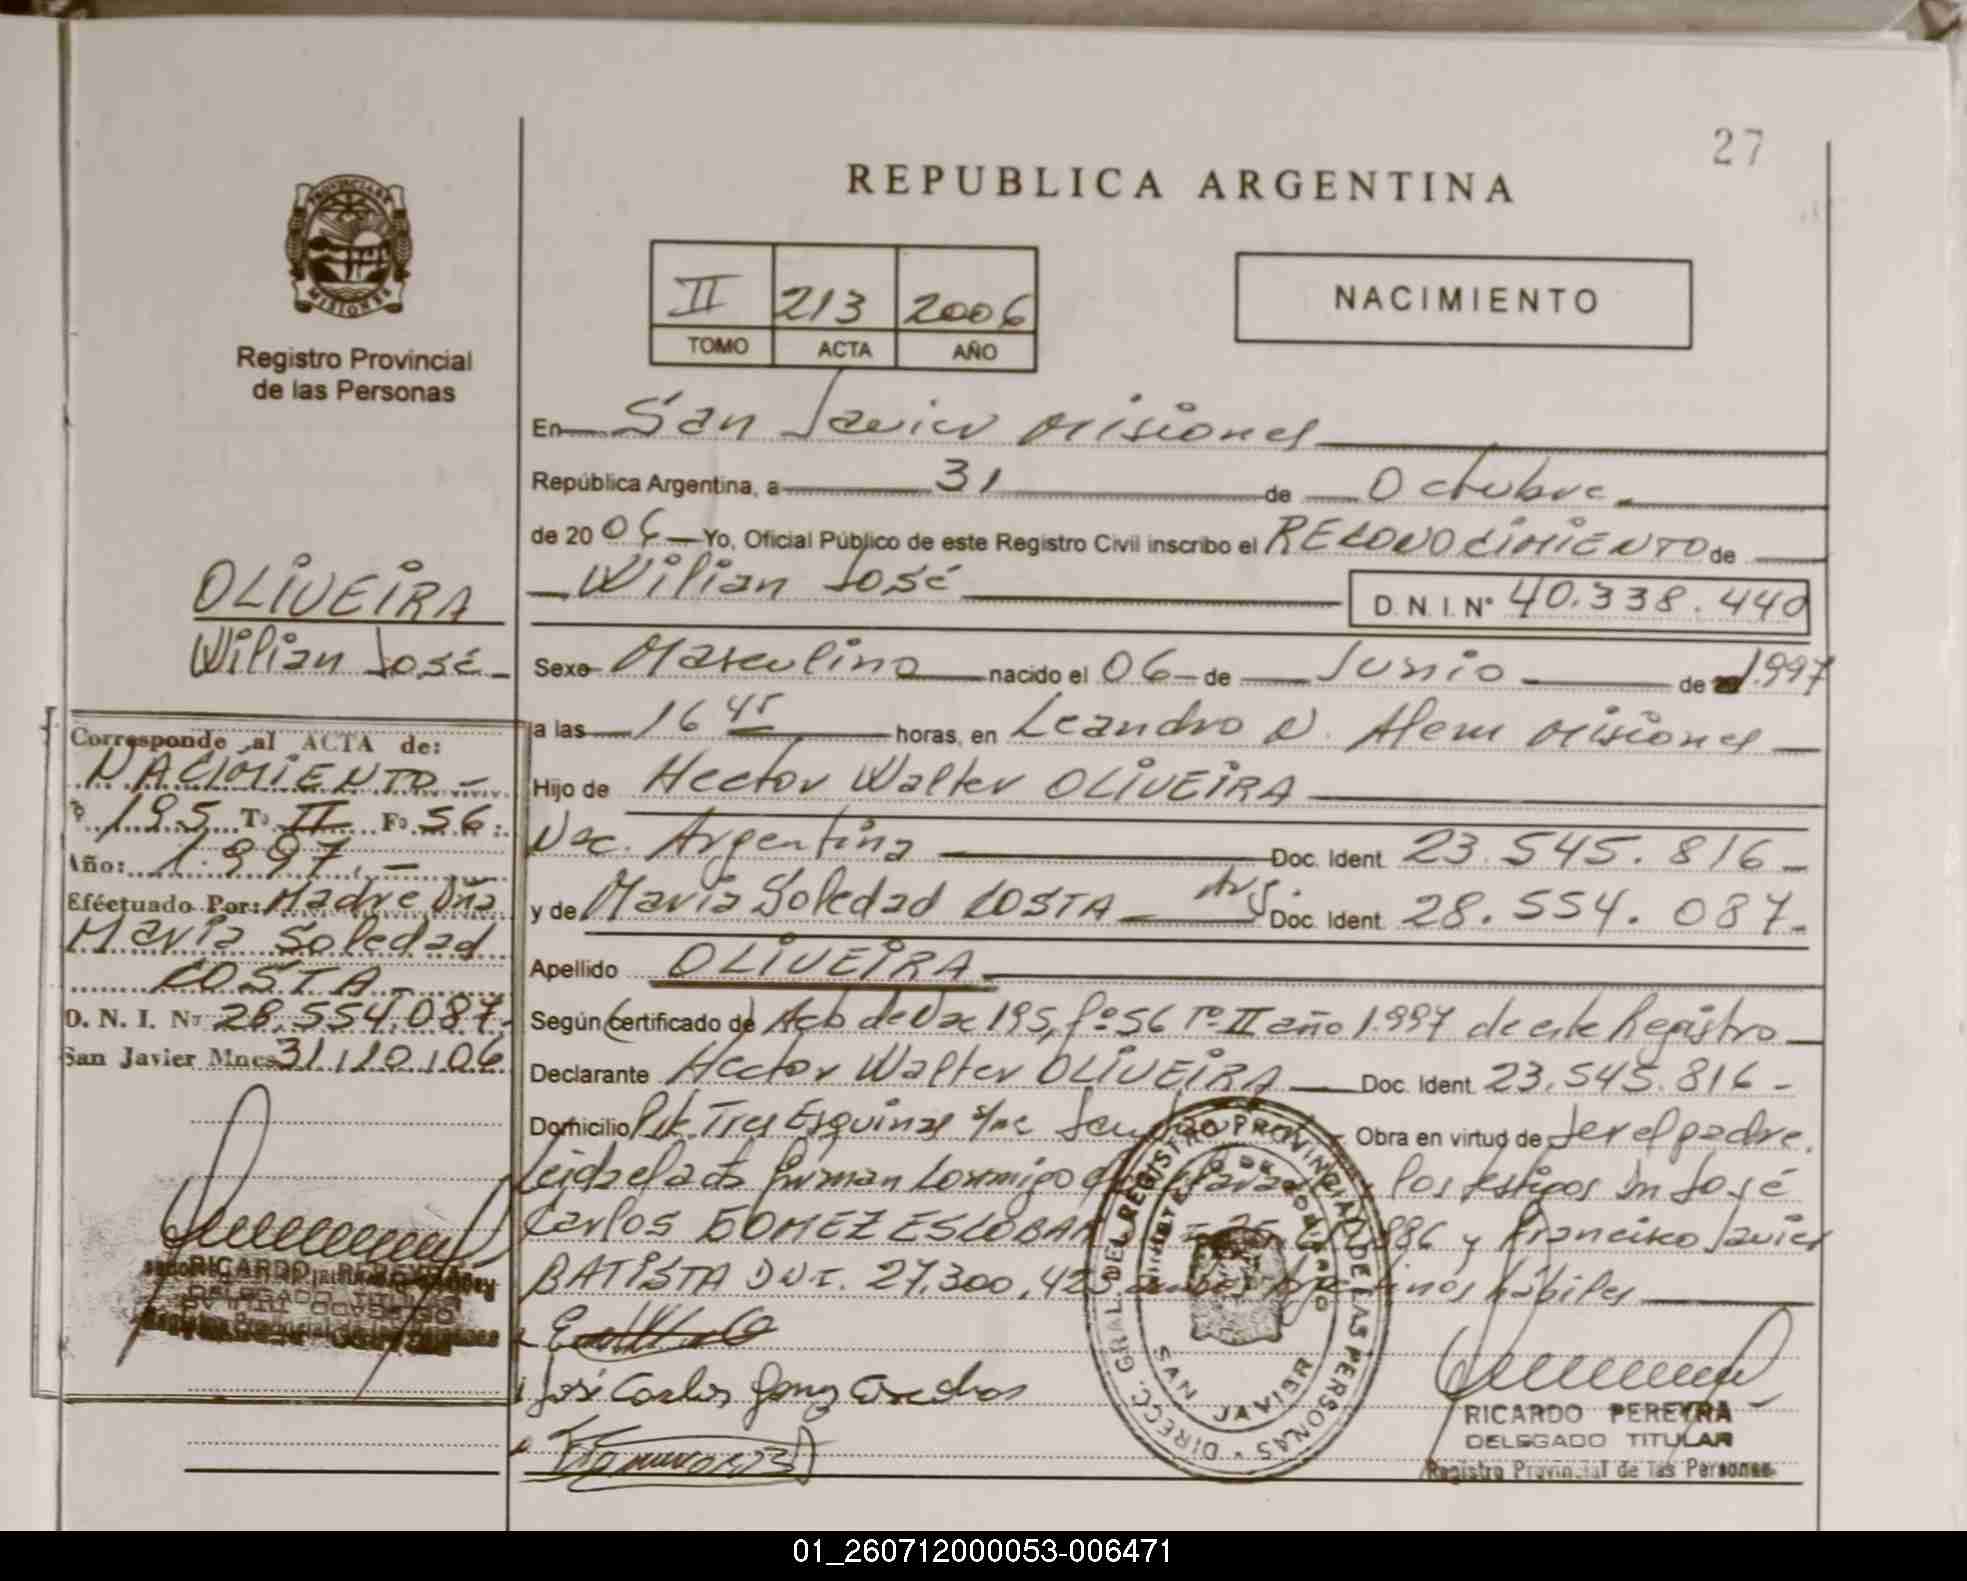 27
REPUBLICA ARGENTINA
PROVINCIA DE
MISIONES
Registro Provincial
de las Personas
II 213 2006
TOMO ACTA AÑO
NACIMIENTO
En San Javier Misiones
República Argentina, a 31 de Octubre
de 2006 Yo, Oficial Público de este Registro Civil inscribo el RECONOCIMIENTO de
Wilian José D. N. I. N° 40.338.440
Sexo Masculino nacido el 06 de Junio de 1.997
a las 16 45 horas, en Leandro N. Alem Misiones
Hijo de Hector Walter OLIVEIRA
Nac. Argentina Doc. Ident. 23.545.816
y de Maria Soledad COSTA Arg. Doc. Ident. 28.554.087
Apellido OLIVEIRA
Según (certificado de) Acta de Nac 195, fº 56 Tº II año 1.997 de este Registro
Declarante Hector Walter OLIVEIRA Doc. Ident. 23.545.816
Domicilio Pje Tres Esquinas s/nº Obra en virtud de ser el padre.
Leida el acta firman conmigo los testigos Dn José
Carlos GOMEZ ESCOBAR 886 y Francisco Javier
BATISTA DNI. 27.300.42 hábiles
José Carlos Gomez Escobar
OLIVEIRA
Wilian José
Corresponde al ACTA de:
NACIMIENTO
195 Tº II Fº 56
Año: 1.997
Eféctuado Por: Madre Dña
Maria Soledad
COSTA
D. N. I. Nº 28.554.087
San Javier Mnes 31/10/06
RICARDO PEREYRA
DELEGADO TITULAR
DIRECC. GRAL. DEL REGISTRO PROVINCIAL DE LAS PERSONAS
SAN JAVIER
RICARDO PEREYRA
DELEGADO TITULAR
Registro Provincial de las Personas
01_260712000053-006471